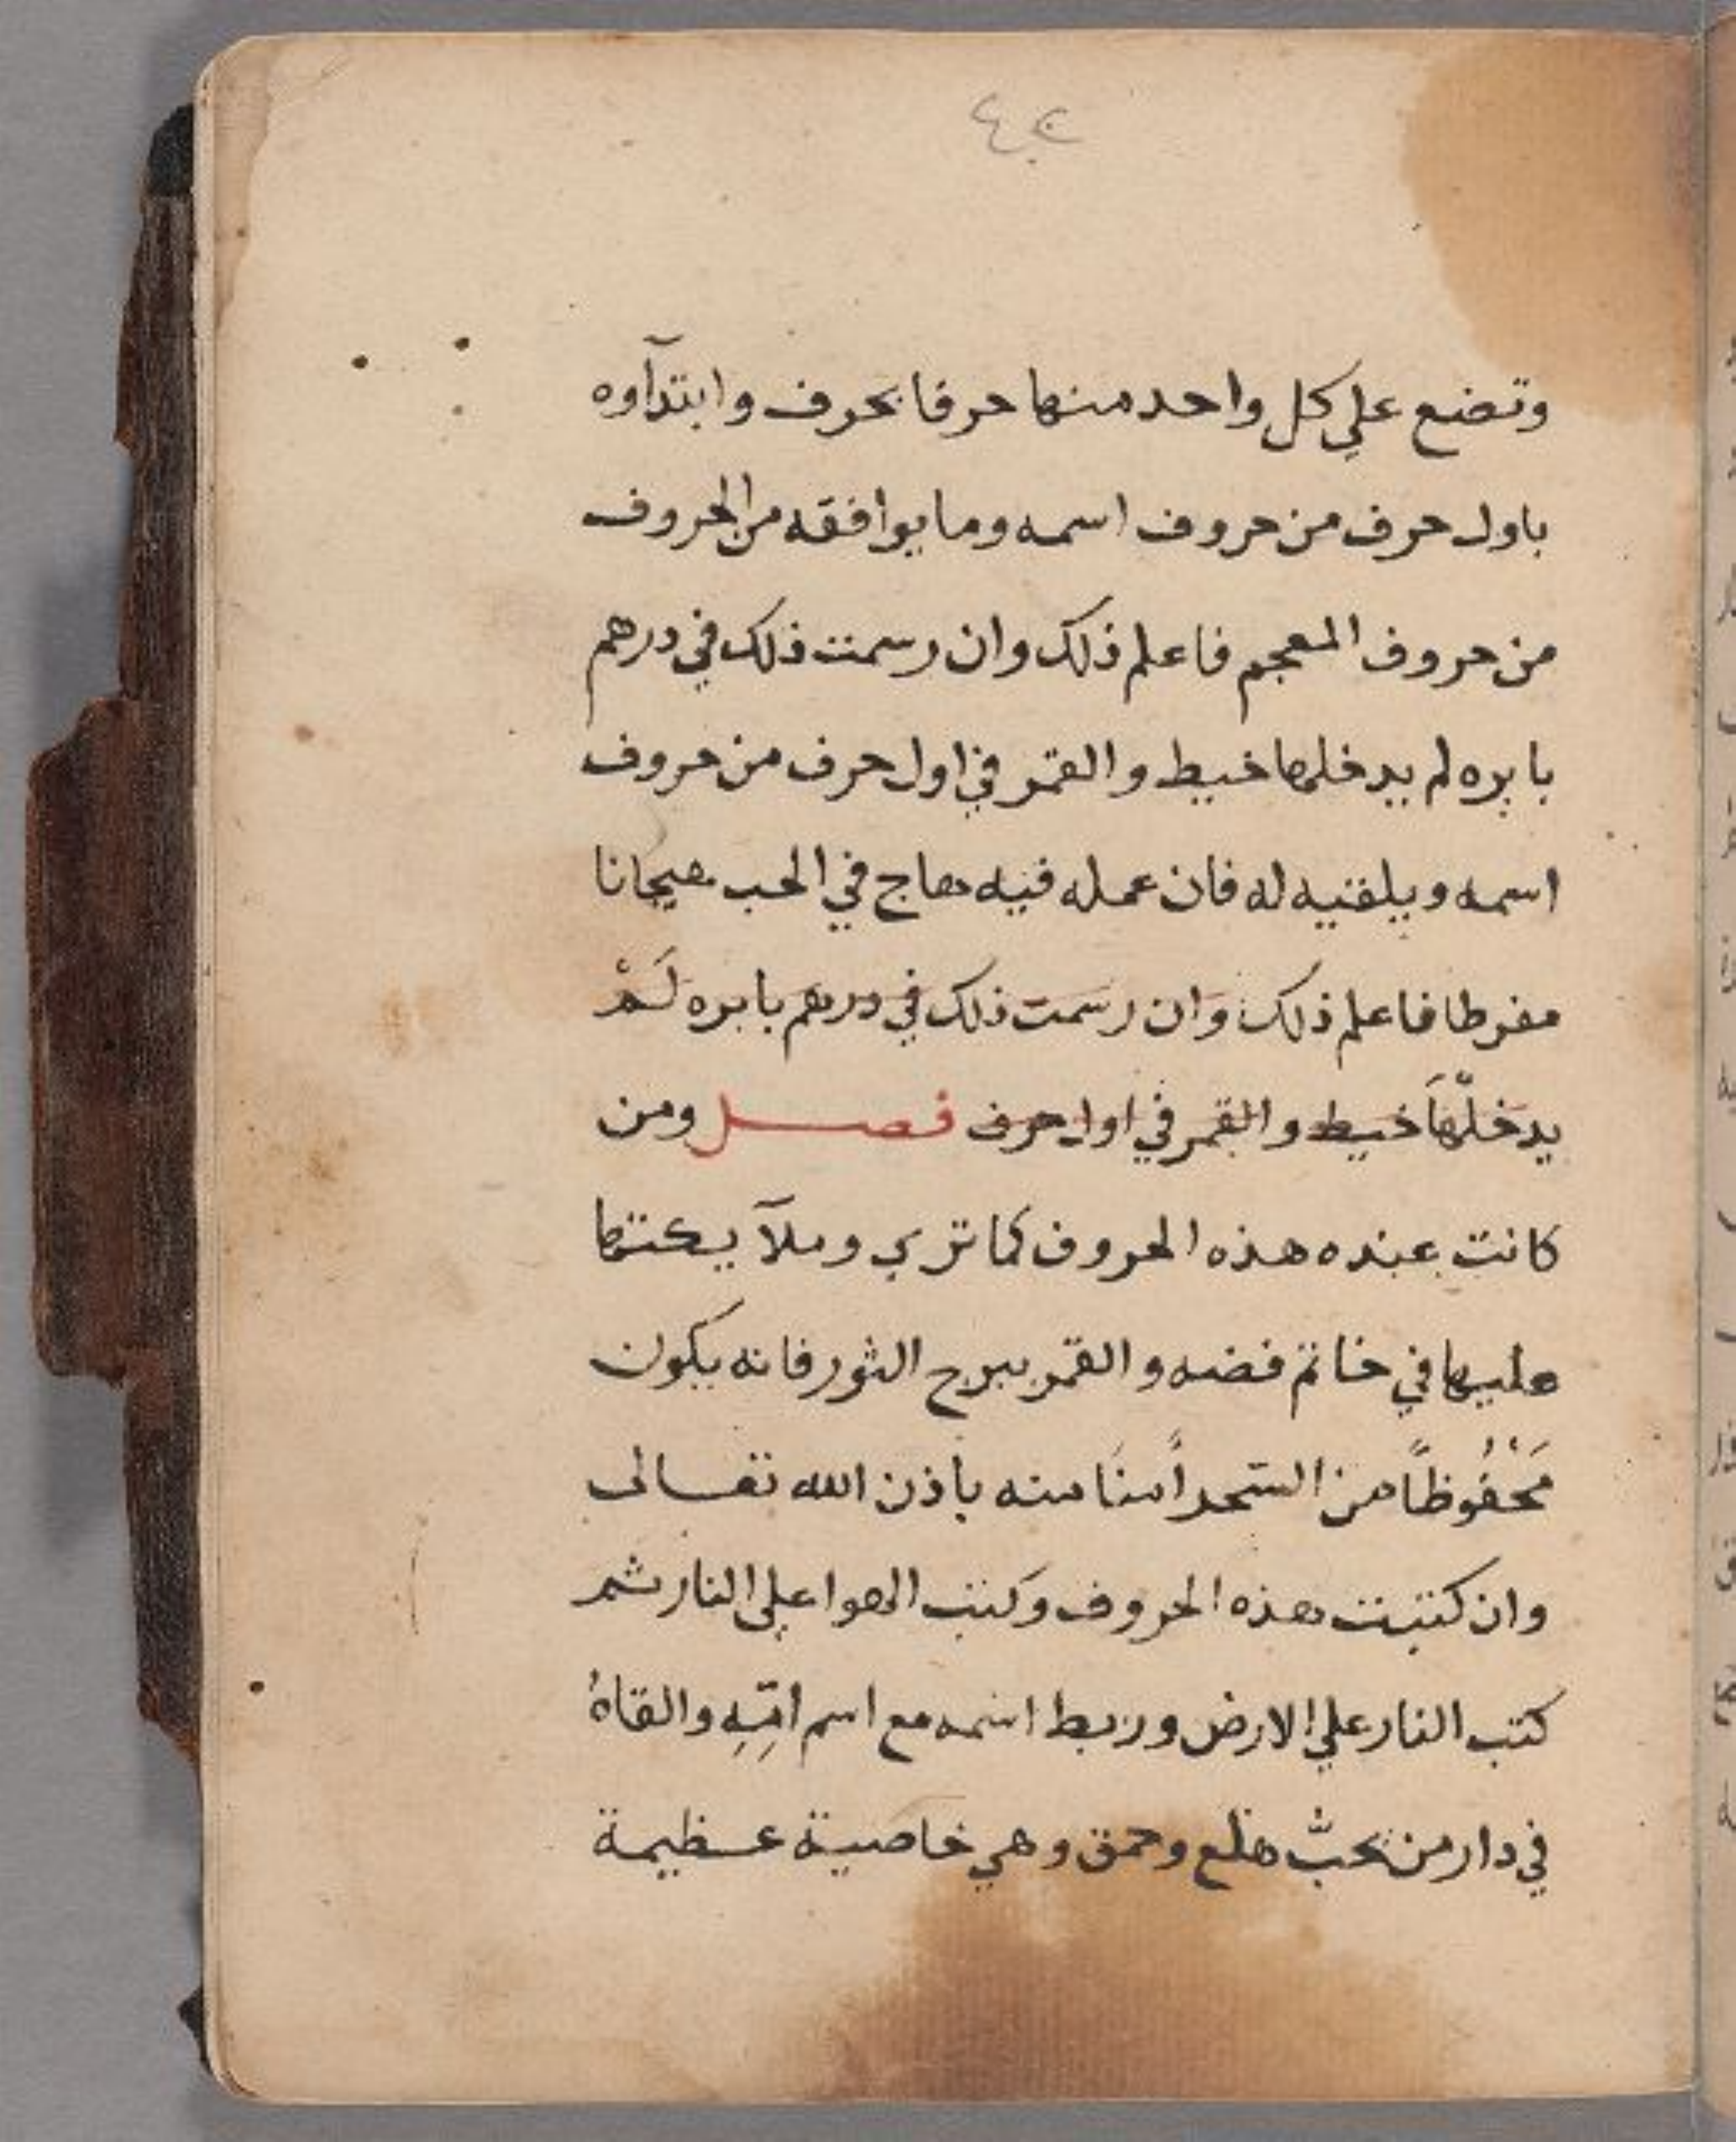 وتضع علي كل واحد منها حرفا بحرف وابتدآوه
باول حرف من حروف اسمه وما يوافقه من الحروف
من حروف المعجم فاعلم ذلك وان رسمت ذلك في درهم
بابره لم يدخلها خيط والقمر في اول حرف من حروف
اسمه ويلقيه له فان عمله فيه هاج في الحب هيجانا
مفرطا فاعلم ذلك وان رسمت ذلك في درهم بابره لَمْ
يدخلّهَا خيط والقمر في اول حرف فصل ومن
كانت عنده هذه الحروف كما تري وملآ يكتها
عليها في خاتم فضه والقمر ببرج الثور فانه يكون
مَحْفُوظًا من السحر أمنًا منه باذن الله تعالى
وان كتبت هذه الحروف وكتب الهوا علي النار ثم
كتب النار علي الارض وربط اسمه مع اسم امّهِ والقاهُ
في دار من تحبّ هلع وحمق وهي خاصية عظيمة